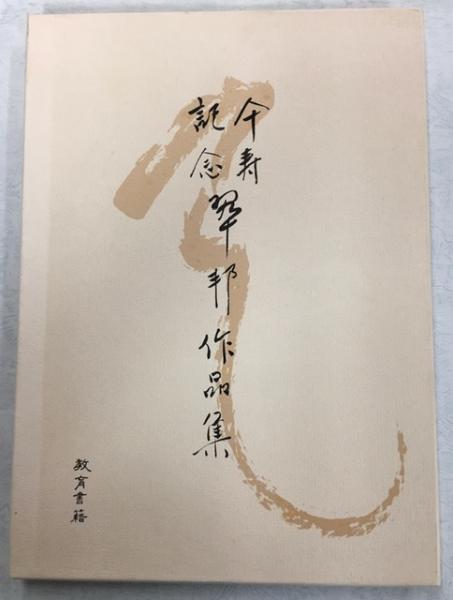 仐寿
記念
翆邦作品集
教育書籍